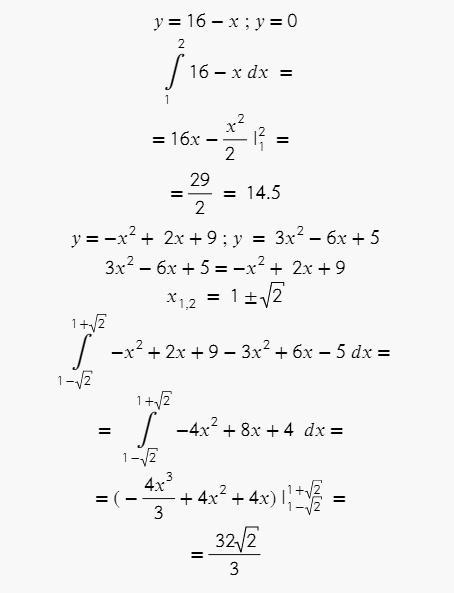 y = 16 − x ; y = 0
∫₁² 16 − x dx =
= 16x − x²/2 |₁² =
= 29/2 = 14.5
y = −x² + 2x + 9 ; y = 3x² − 6x + 5
3x² − 6x + 5 = −x² + 2x + 9
x₁,₂ = 1 ± √2
∫_{1−√2}^{1+√2} −x² + 2x + 9 − 3x² + 6x − 5 dx =
= ∫_{1−√2}^{1+√2} −4x² + 8x + 4 dx =
= (− 4x³/3 + 4x² + 4x) |_{1−√2}^{1+√2} =
= 32√2/3